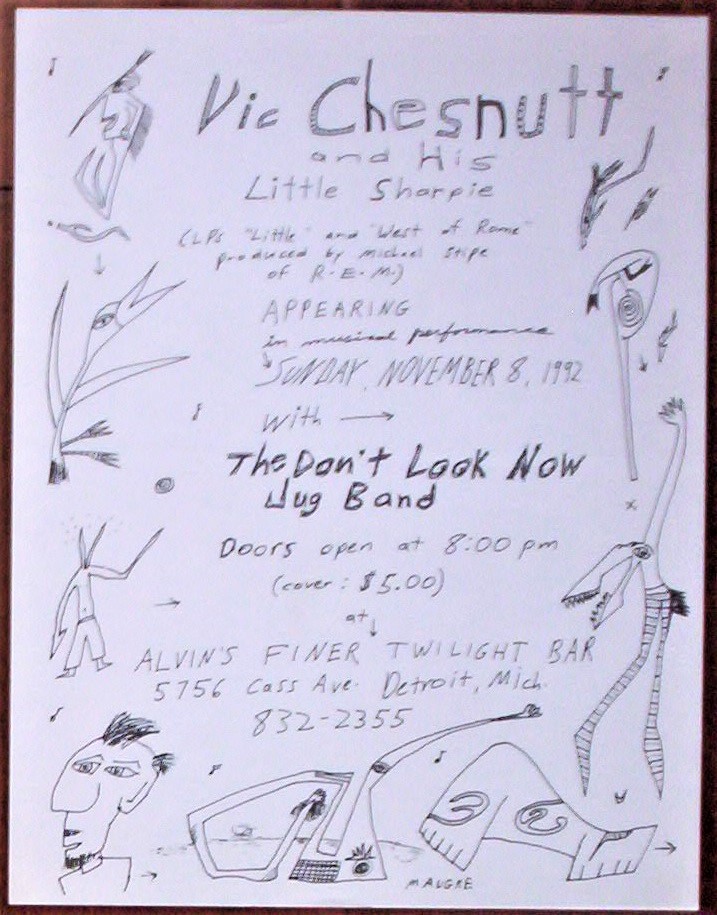 Vic Chesnutt
and His
Little Sharpie
(LPs "Little" and "West of Rome"
produced by michael stipe
of R.E.M.)
APPEARING
in musical performance
SUNDAY, NOVEMBER 8, 1992
with
The Don't Look Now
Jug Band
Doors open at 8:00 pm
(cover: $5.00)
at
ALVIN'S FINER TWILIGHT BAR
5756 Cass Ave. Detroit, Mich.
832-2355
MAUGRE